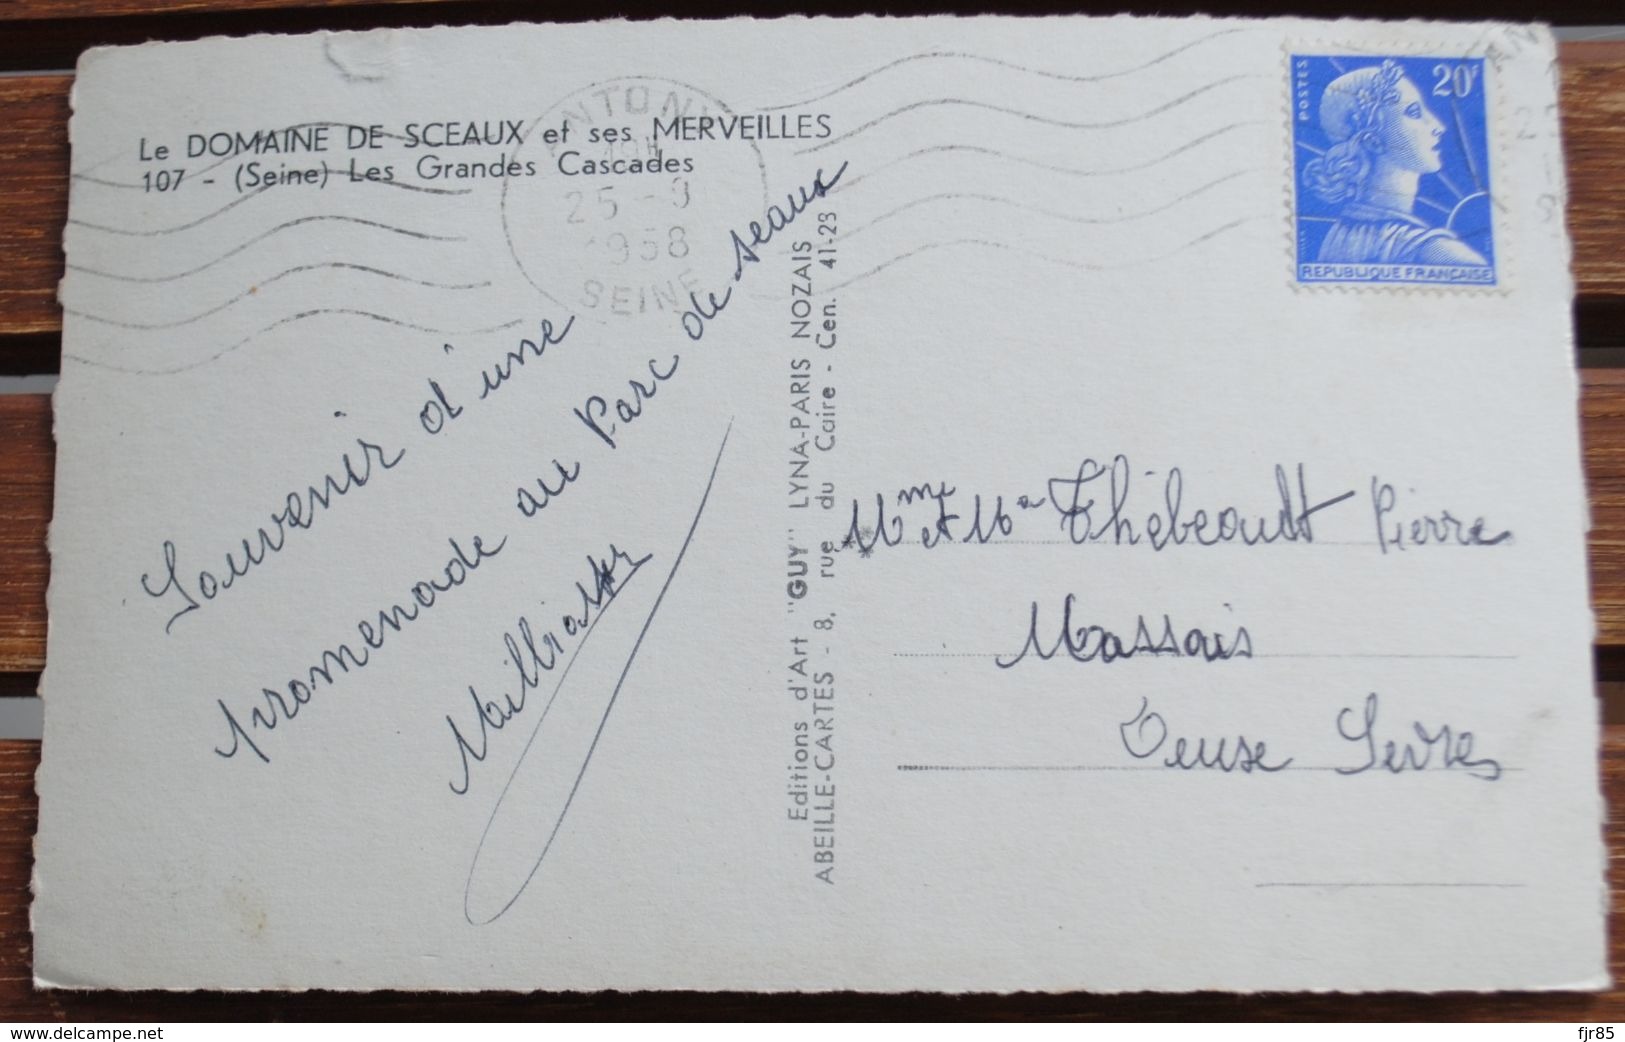 Le DOMAINE DE SCEAUX et ses MERVEILLES
107 - (Seine) Les Grandes Cascades
ANTONY
25 - 9
1958
SEINE
POSTES
20F
REPUBLIQUE FRANÇAISE
Souvenir d'une
promenade au Parc de seaux
Editions d'Art "GUY" LYNA-PARIS NOZAIS
ABEILLE-CARTES - 8, rue du Caire - Cen. 41-23
Mme et Mr Thébeault Pierre
Massais
Deuse Sevres
www.delcampe.net
fjr85